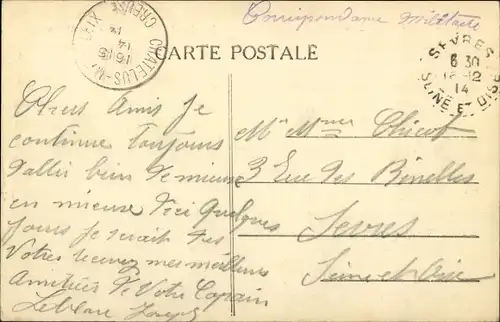 Correspondance Militaire
CHATELUS-M
CREUSE
16 15
14
SEVRES
6 30
12
14
SEINE ET OISE
CARTE POSTALE
Chers Amis Je
continue toujours
d'aller bien de mieux
en mieux d'ici quelques
jours Je serait des
Votres recevez mes meilleurs
Amitiées de Votre Copain
Leblanc Joseph
Mr Mme Chicot
3 Rue des Binelles
Sevres
Seine et Oise